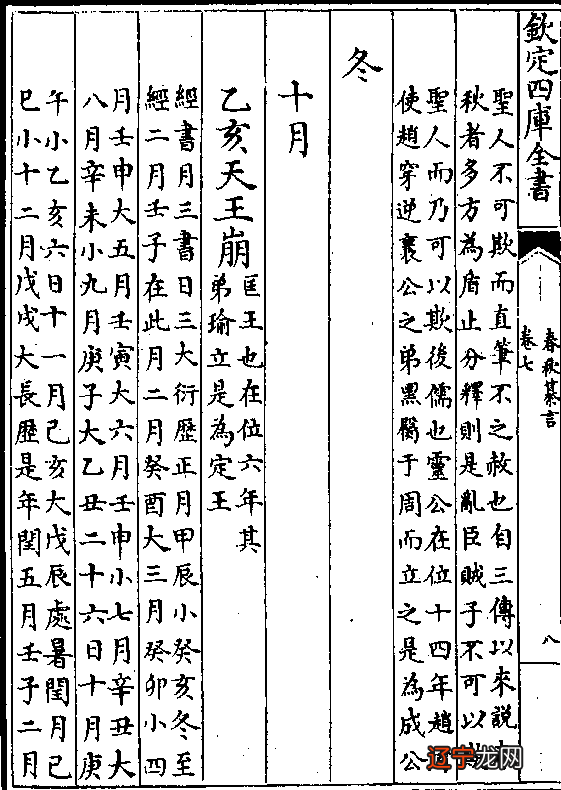 欽定四庫全書
春秋綦言
卷七
八
聖人不可欺而直筆不之赦也自三傳以來說
秋者多方為盾止分釋則是亂臣賊子不可以
聖人而乃可以欺後儒也靈公在位十四年趙
使趙穿逆襄公之弟黑臀于周而立之是為成公
冬
十月
乙亥天王崩
匡王也在位六年其
弟瑜立是為定王
經書月三書日三大衍歷正月甲辰小癸亥冬至
經二月壬子在此月二月癸酉大三月癸卯小四
月壬申大五月壬寅大六月壬申小七月辛丑大
八月辛未小九月庚子大乙丑二十六日十月庚
午小乙亥六日十一月己亥大戊辰處暑閏月己
巳小十二月戊戌大長歷是年閏五月壬子二月
辽宁龙网